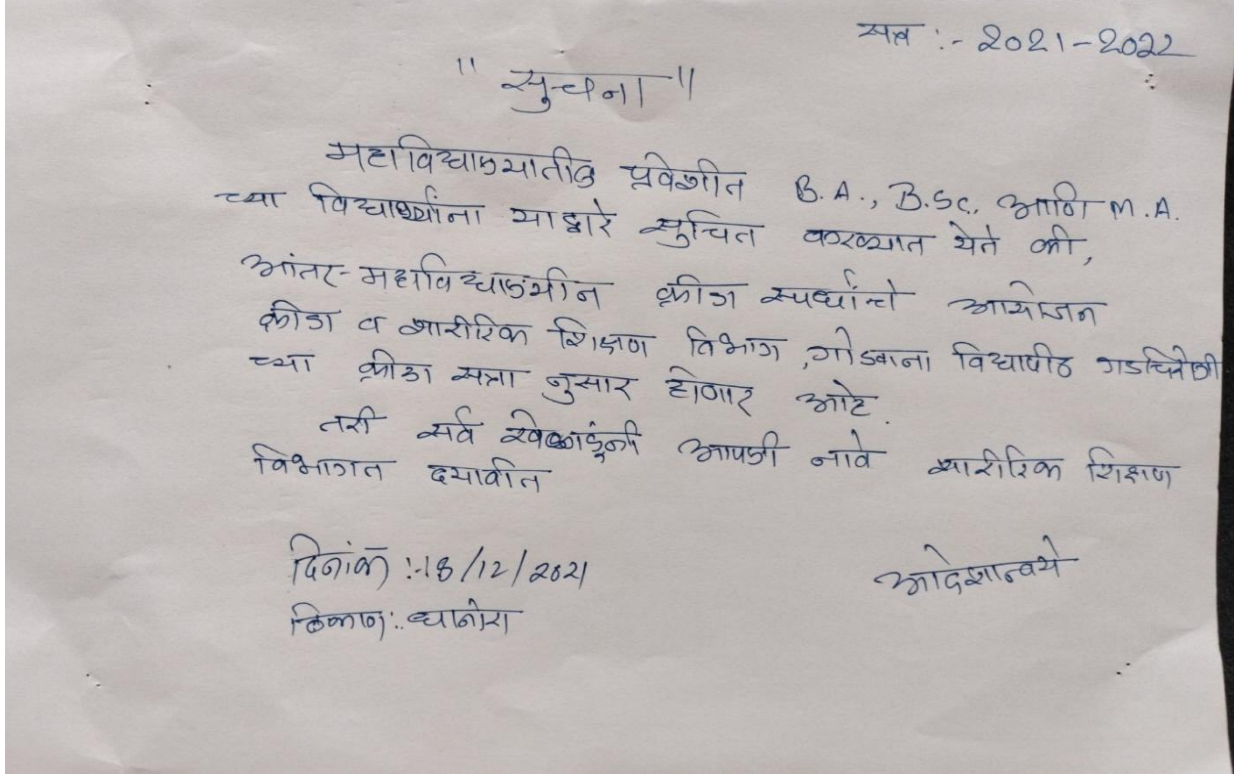 सत्र :- 2021-2022
" सुचना "
महाविद्यालयातील प्रवेशीत B.A., B.Sc. आणि M.A.
च्या विद्यार्थ्यांना याद्वारे सुचित करण्यात येते की,
आंतर-महाविद्यालयीन क्रीडा स्पर्धांचे आयोजन
क्रीडा व शारीरिक शिक्षण विभाग, गोंडवाना विद्यापीठ गडचिरोली
च्या क्रीडा सत्रा नुसार होणार आहे.
तरी सर्व खेळाडूंनी आपली नावे शारीरिक शिक्षण
विभागात दयावीत
दिनांक :-18/12/2021
आदेशान्वये
ठिकाण:- धानोरा